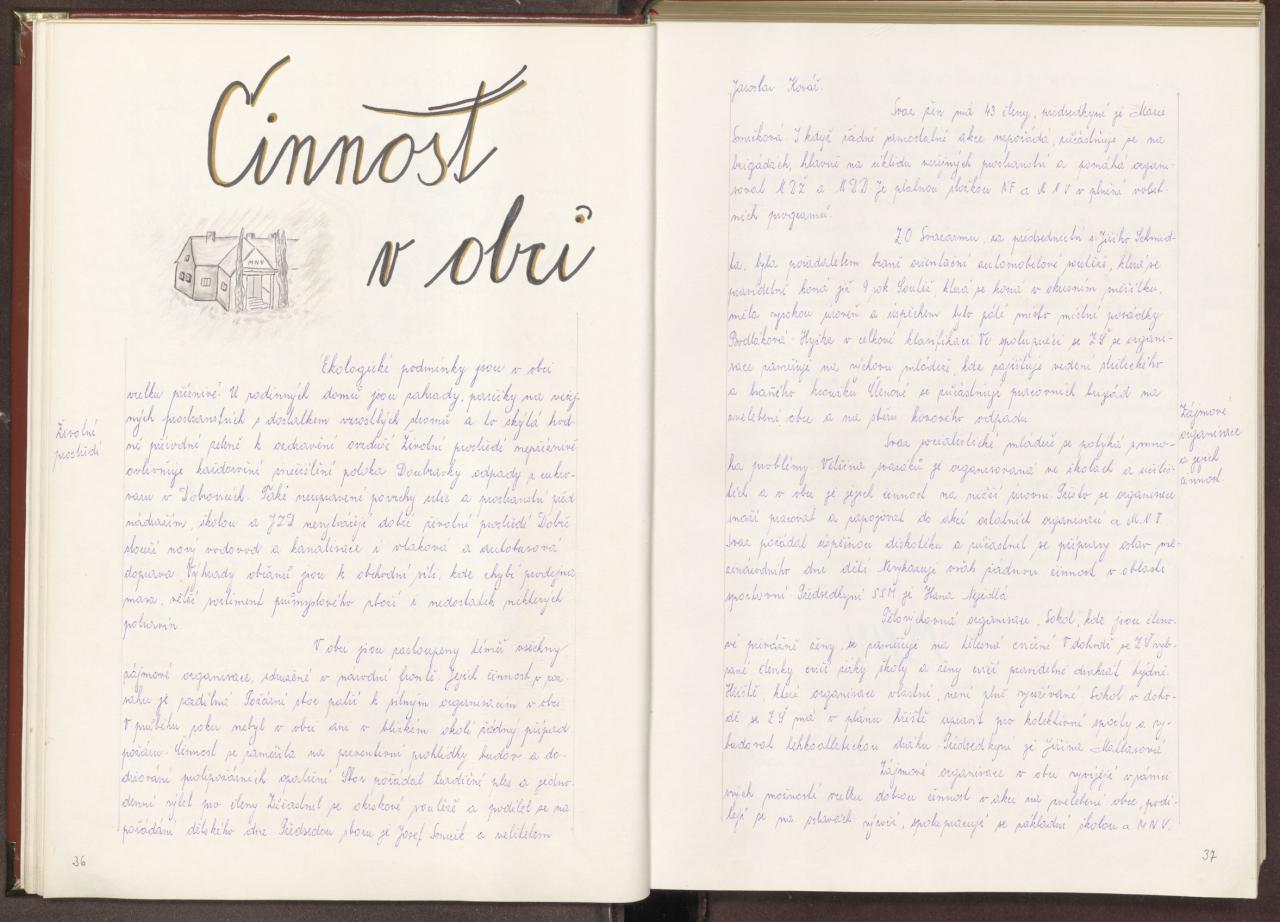 Činnost
v obci
MNV
Ekologické podmínky jsou v obci
vcelku příznivé. U rodinných domů jsou zahrady, parčíky na veřej-
ných prostranstvích s dostatkem vzrostlých stromů a to skýtá hod-
ně přírodní zeleně k ozdravění ovzduší. Životní prostředí nepříznivě
ovlivňuje každoroční znečištění potoka Doubravky odpady z cukro-
varu v Dobrovicích. Také neupravené povrchy ulic a prostranství před
nádražím, školou a JZD nevytvářejí dobré životní prostředí. Dobře
slouží nový vodovod a kanalizace i vlaková a autobusová
doprava. Výhrady občanů jsou k obchodní síti, kde chybí prodejna
masa, větší sortiment průmyslového zboží i nedostatek některých
potravin.
Životní
prostředí
V obci jsou zastoupeny téměř všechny
zájmové organizace, sdružené v národní frontě. Jejich činnost, v roz-
sahu je rozdílná. Požární sbor patří k silným organizacím v obci.
V průběhu roku nebyl v obci ani v blízkém okolí žádný případ
požáru. Činnost se zaměřila na preventivní prohlídky budov a do-
držování protipožárních opatření. Sbor pořádal tradiční ples a jedno-
denní výlet pro členy. Zúčastnil se okrskové soutěže a podílel se na
pořádání dětského dne. Předsedou sboru je Josef Součik a velitelem
36
Jaroslav Kovář.
Svaz žen má 43 členy, předsedkyně je Marie
Součková. I když žádné samostatné akce nepořádá, zúčastňuje se na
brigádách, hlavně na úklidu veřejných prostranství a pomáhá organi-
zovat MDŽ a MDD. Je platnou složkou NF a MNV v plnění voleb-
ních programů.
ZO Svazarmu, za předsednictví s. Jiřího Schmid-
ta, byla pořadatelem branně orientační automobilové soutěže, která se
pravidelně koná již 9 rok. Soutěž, která se koná v okresním měřítku,
měla vysokou úroveň a úspěchem bylo páté místo místní posádky
- Hyška v celkové klasifikaci. Ve spolupráci se ZŠ se organi-
zace zaměřuje na výchovu mládeže, kde zajišťuje vedení střeleckého
a branného kroužku. Členové se zúčastňuje pracovních brigád na
zvelebení obce a na sběru kovového odpadu.
Zájmové
organizace
a jejich
činnost.
Svaz socialistické mládeže se potýká s mno-
ha problémy. Většina svazáků je organizovaná ve školách a učiliš-
tích a v obci je jejich činnost na nižší úrovni. Přesto se organizace
snaží pracovat a zapojovat do akcí ostatních organizací a MNV.
Svaz pořádal úspěšnou diskotéku a zúčastnil se přípravy oslav me-
zinárodního dne dětí. Nevykazuje však žádnou činnost v oblasti
sportovní. Předsedkyní SSM je Hana
Tělovýchovná organizace, Sokol, kde jsou členo-
vé převážně ženy, se zaměřuje na tělesná cvičení. V dohodě se ZŠ vyb-
rané členky cvičí žáky školy a ženy cvičí pravidelně dvakrát týdně.
Hřiště, které organizace vlastní, není plně využívané. Sokol v doho-
dě se ZŠ má v plánu hřiště upravit pro kolektivní sporty a vy-
budovat lehkoatletickou dráhu. Předsedkyní je Jiřina
Zájmové organizace v obci vyvíjejí v rámci
svých možností vcelku dobrou činnost v akci na zvelebení obce, podí-
lejí se na oslavách výročí, spolupracují se základní školou a MNV.
37